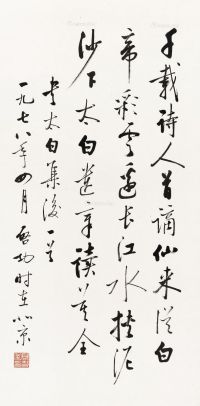 千载诗人首谪仙来从白
帝彩云边长江水挟泥
沙下太白遗章读莫全
书太白集後一首
一九七八年四月启功时在北京